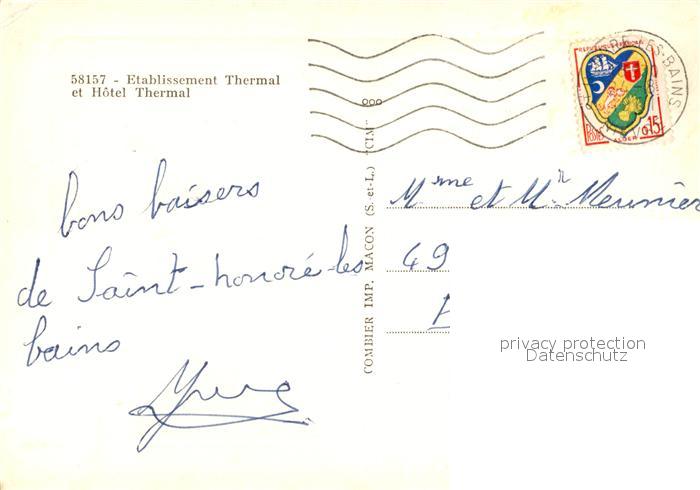 58157 - Etablissement Thermal
et Hôtel Thermal
bons baisers
de Saint-honoré-les
bains
COMBIER IMP. MACON (S.-et-L.) "CIM"
LES-BAINS
POSTES 0,15
ALGER
Mme et Mr Meunier
49
privacy protection
Datenschutz